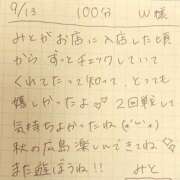 9/13 100分 W様
みとがお店に入店した頃
からずっとチェックしていて
くれてたって知って、とっても
嬉しかったよ♡ 2回戦して
気持ちよかったね(*´ω`*)
秋の広島楽しんできてね♡
また遊ぼうね!!
みと